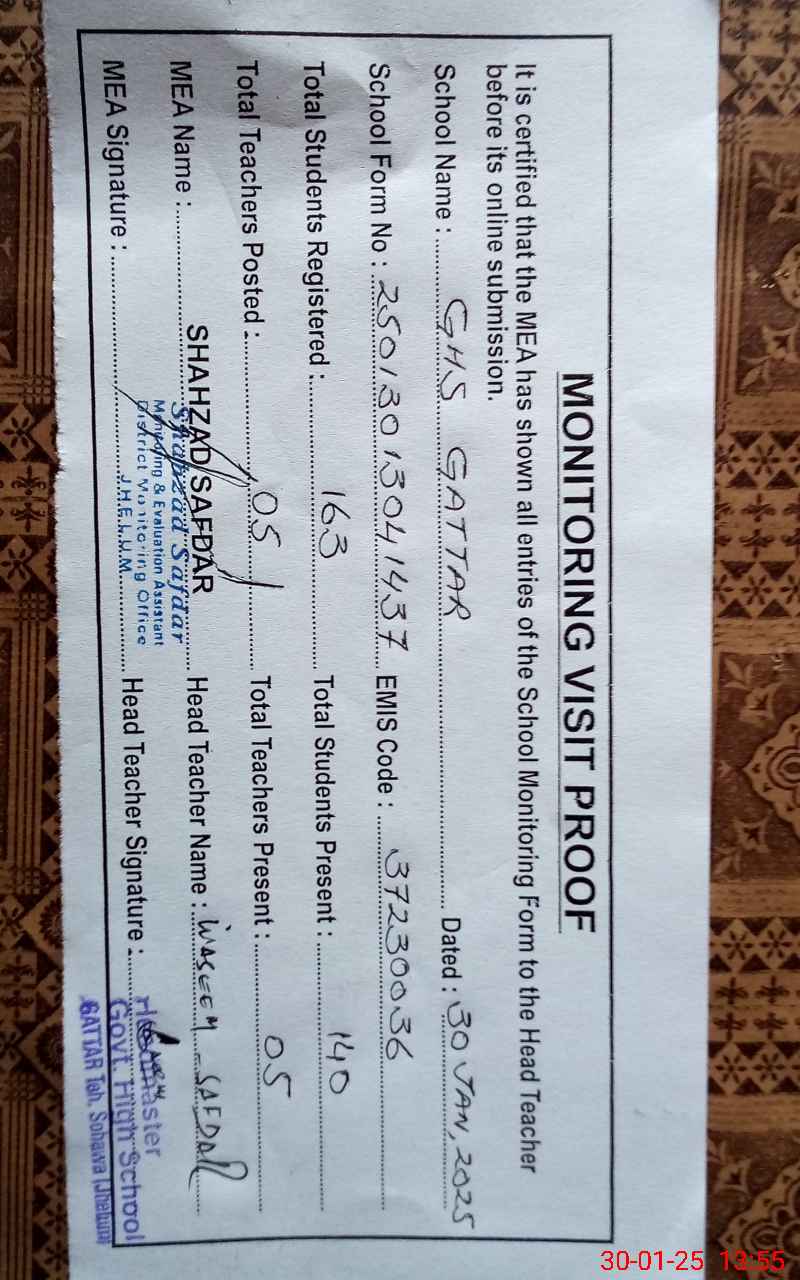 MONITORING VISIT PROOF
It is certified that the MEA has shown all entries of the School Monitoring Form to the Head Teacher
before its online submission.
School Name : GHS GATTAR Dated : 30 JAN, 2025
School Form No : 25013013041437 EMIS Code : 37230036
Total Students Registered : 163 Total Students Present : 140
Total Teachers Posted : 05 Total Teachers Present : 05
MEA Name : SHAHZAD SAFDAR Head Teacher Name : WASEEM SAFDAR
Shahzad Safdar
Monitoring & Evaluation Assistant
District Monitoring Office
J.H.E.L.U.M
MEA Signature : Head Teacher Signature :
Headmaster
Govt. High School
GATTAR Teh. Sohawa (Jhelum)
30-01-25 13:55